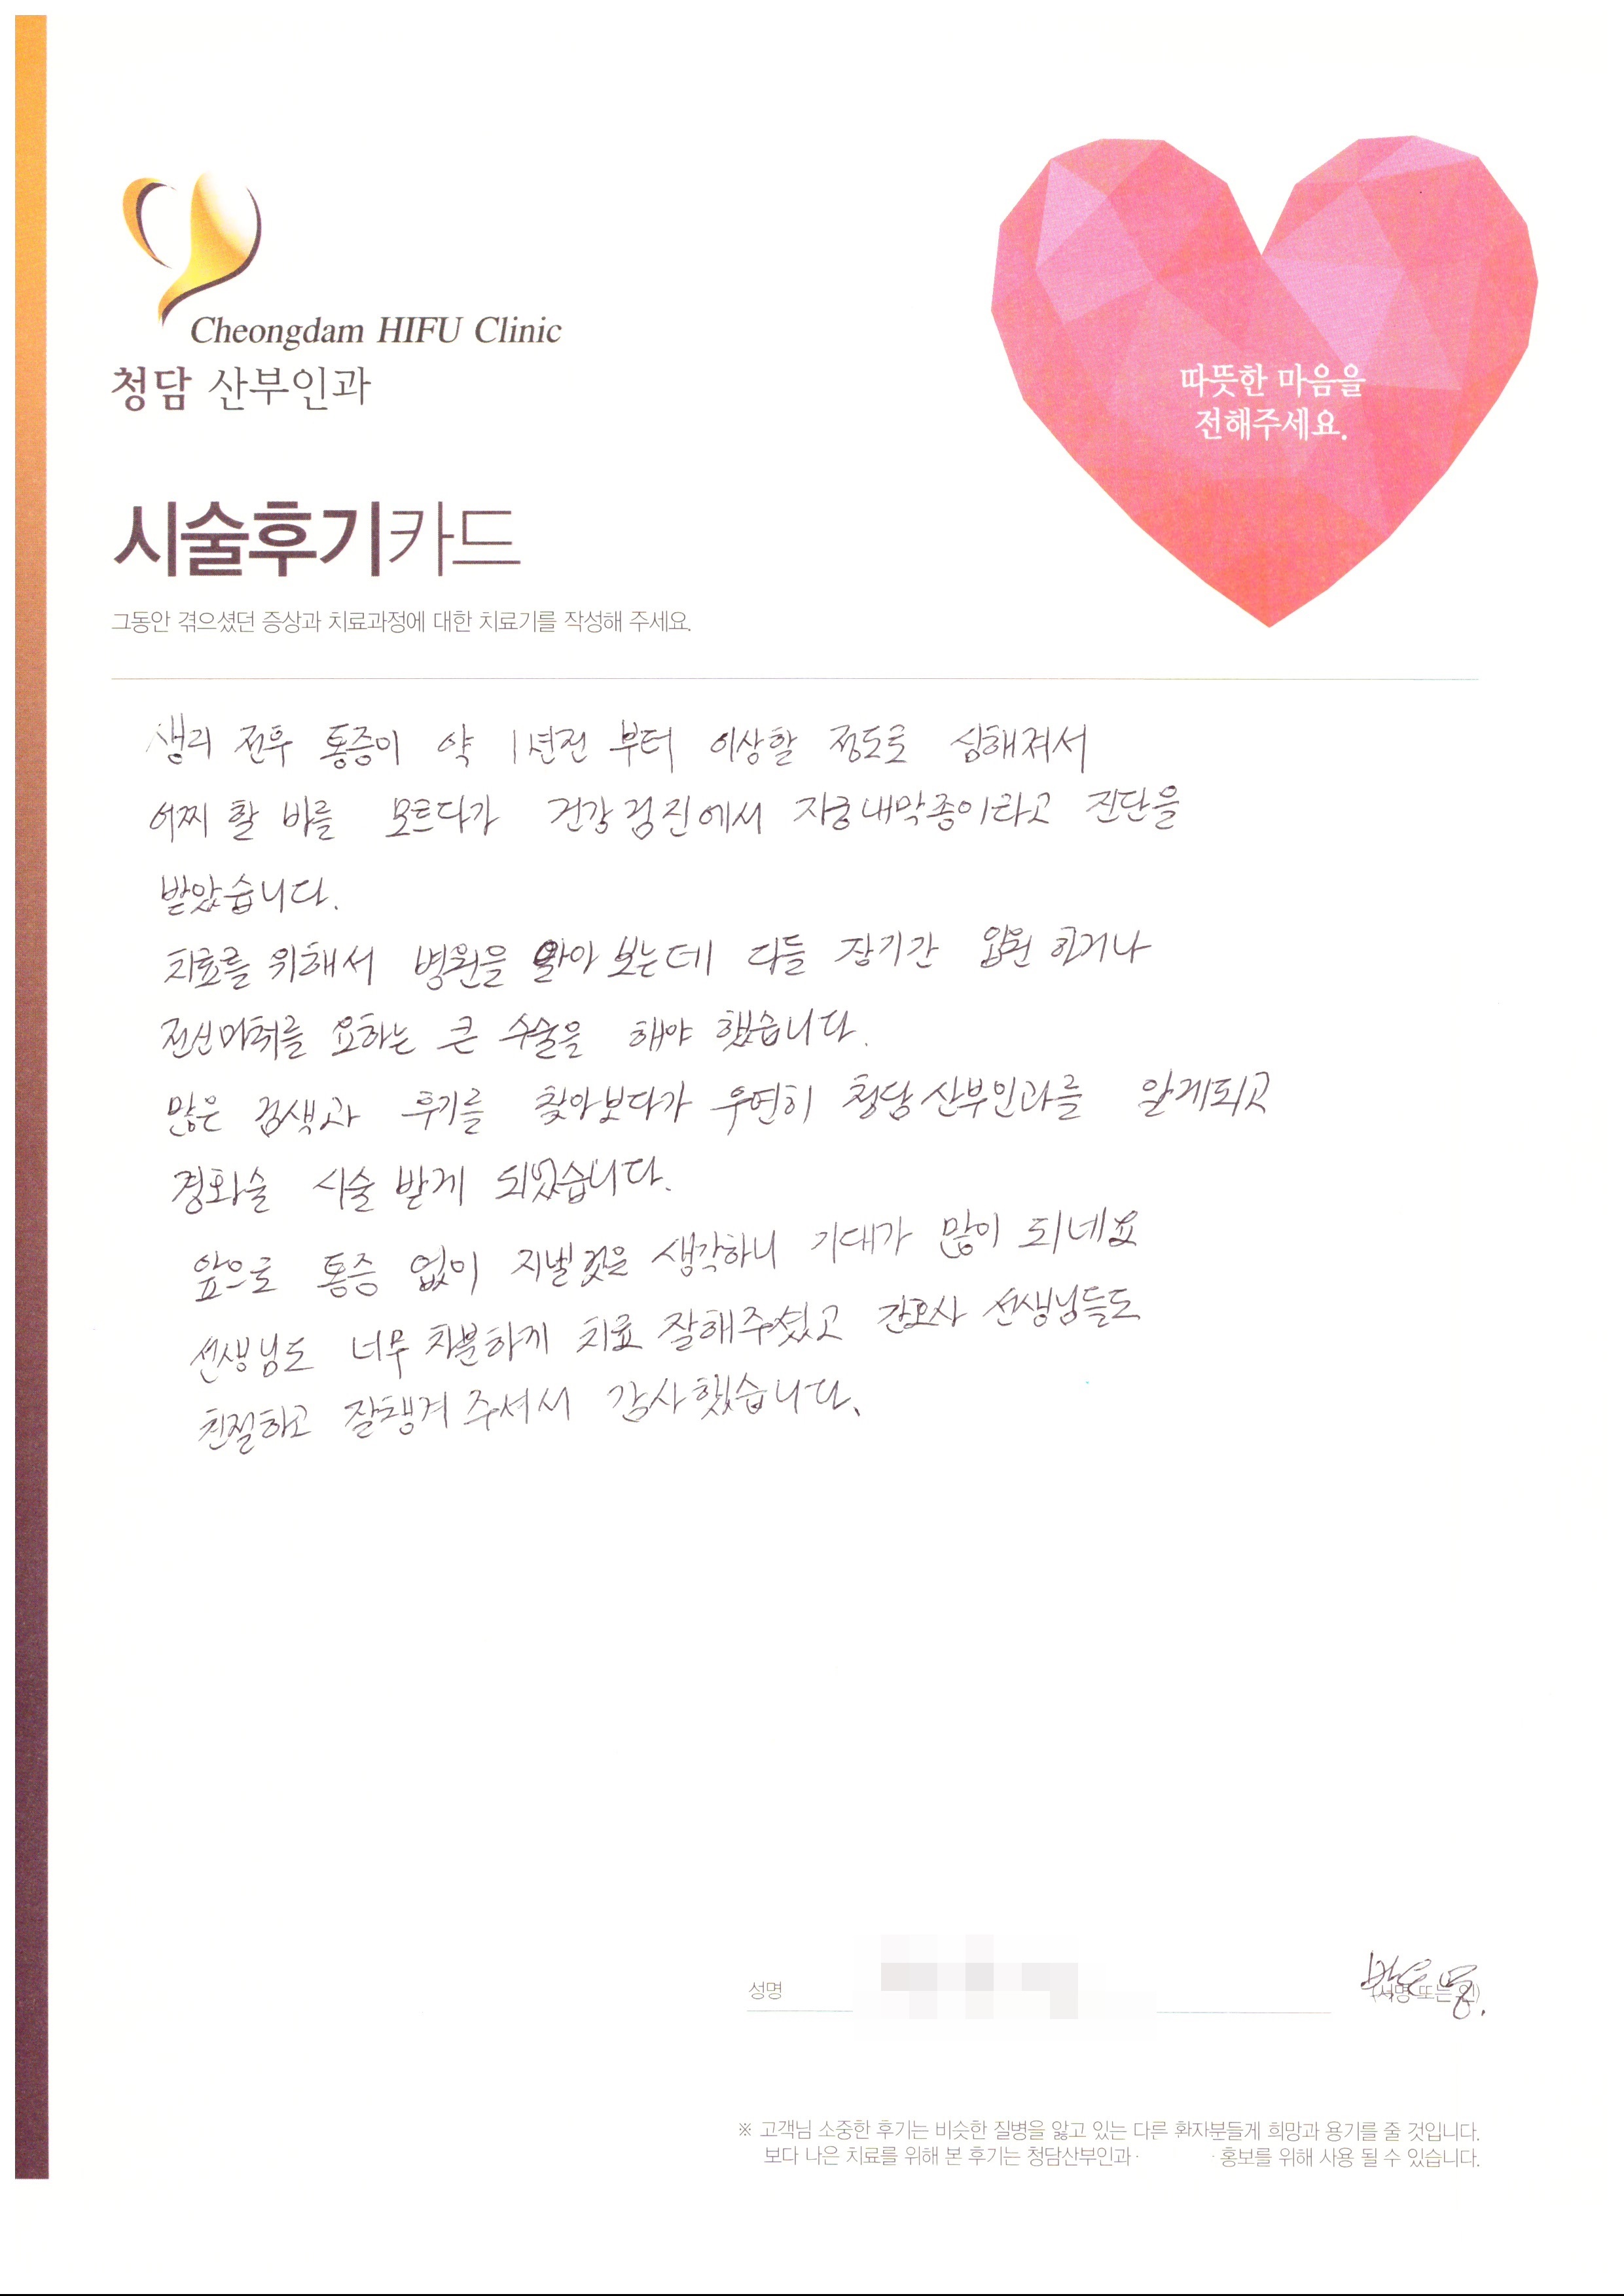 Cheongdam HIFU Clinic
청담 산부인과
따뜻한 마음을
전해주세요.
시술후기카드
그동안 겪으셨던 증상과 치료과정에 대한 치료기를 작성해 주세요.
생리 전후 통증이 약 1년전 부터 이상할 정도로 심해져서
어찌 할 바를 모르다가 건강검진에서 자궁내막종이라고 진단을
받았습니다.
치료를 위해서 병원을 알아 보는데 다들 장기간 입원 하거나
전신마취를 요하는 큰 수술을 해야 했습니다.
많은 검색과 후기를 찾아보다가 우연히 청담산부인과를 알게되고
경화술 시술 받게 되었습니다.
앞으로 통증 없이 지낼것을 생각하니 기대가 많이 되네요
선생님도 너무 차분하게 치료 잘해주셨고 간호사 선생님들도
친절하고 잘챙겨 주셔서 감사했습니다.
성명
(서명 또는 인)
※ 고객님 소중한 후기는 비슷한 질병을 앓고 있는 다른 환자분들게 희망과 용기를 줄 것입니다.
보다 나은 치료를 위해 본 후기는 청담산부인과· ·홍보를 위해 사용 될 수 있습니다.